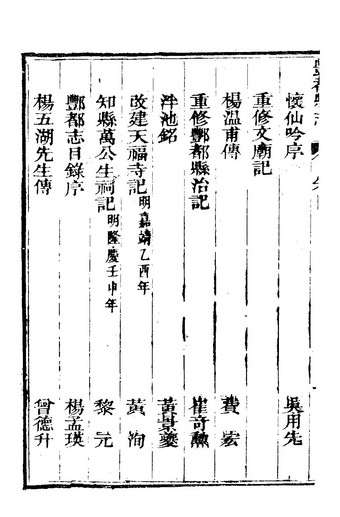 懷仙吟序 吳用先
重修文廟記
楊溫甫傳 費宏
重修酆都縣治記 崔奇勲
泮池銘 黃景夔
改建天福寺記 明嘉靖乙酉年 黃洵
知縣萬公生祠記 明隆慶壬申年 黎元
酆都志目錄序 楊孟瑛
楊五湖先生傳 曾德升